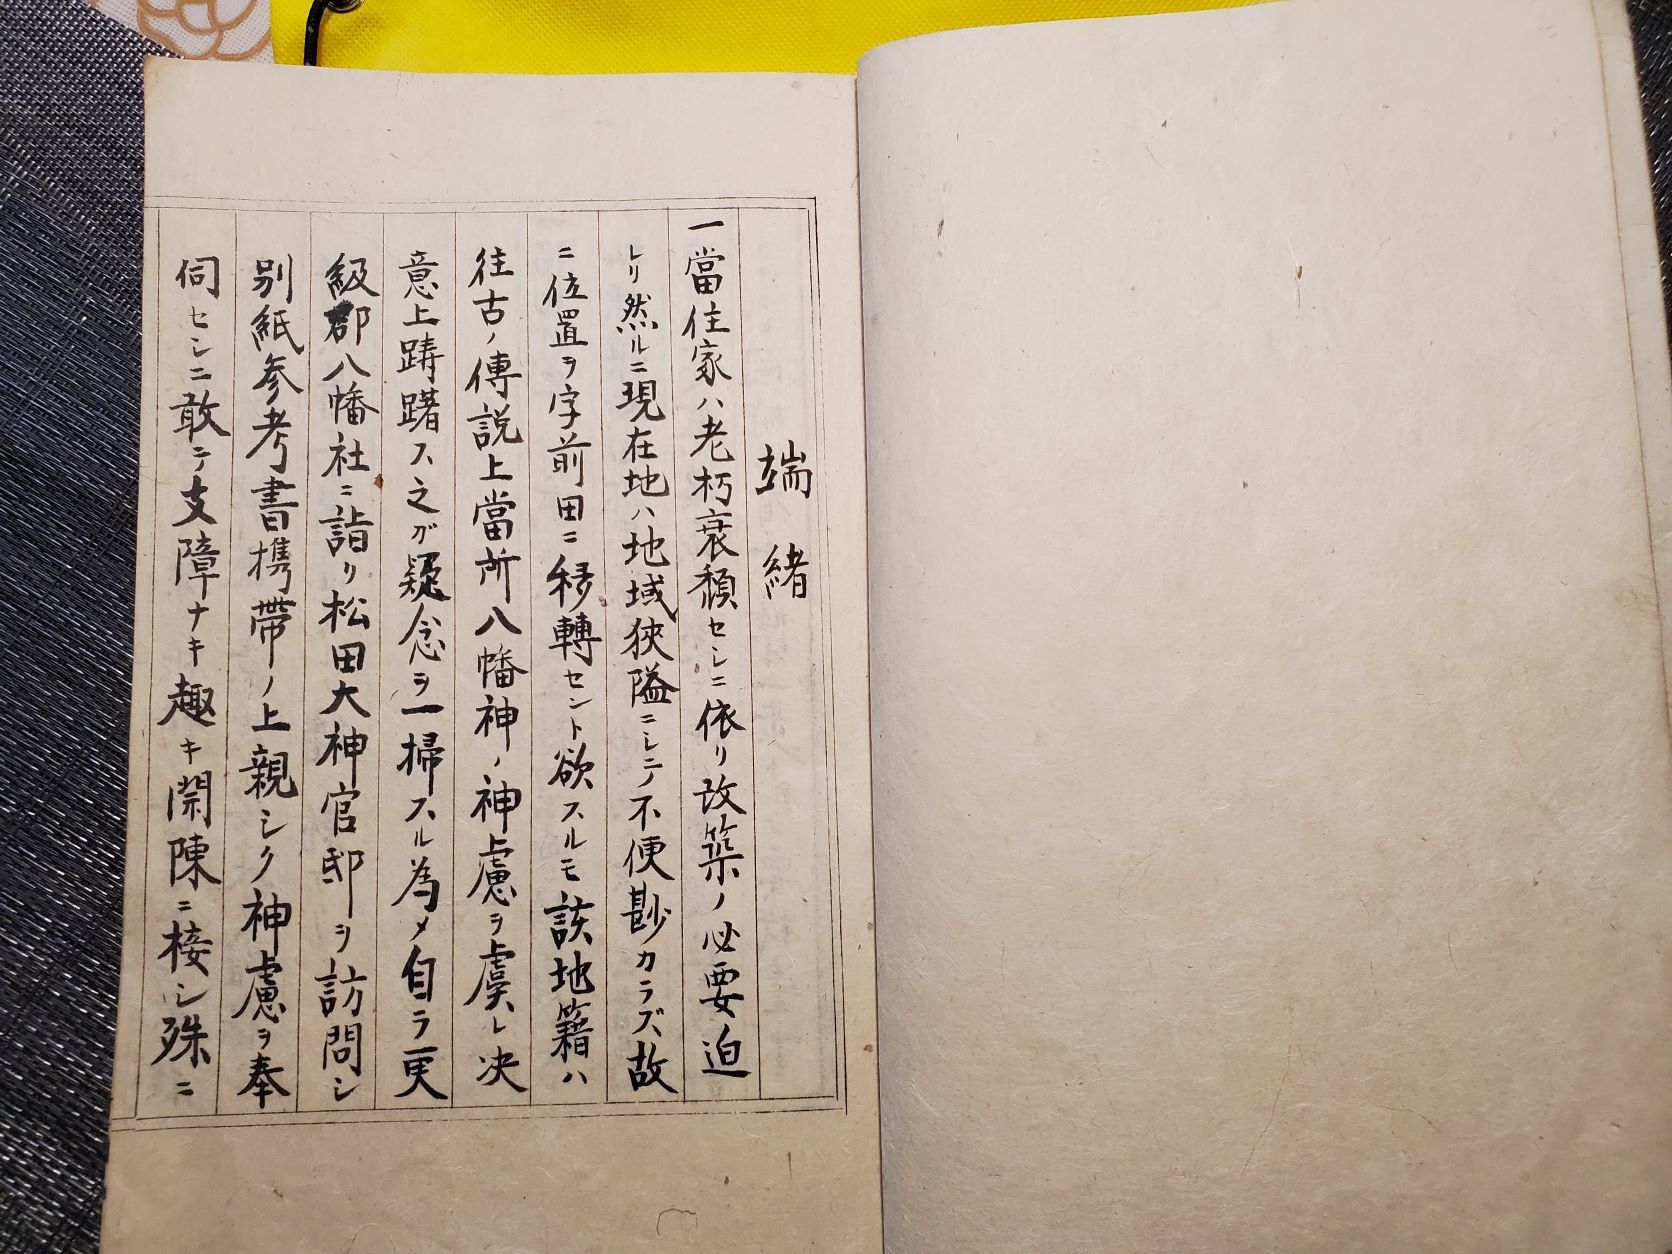 端緒
一當住家ハ老朽衰頽セシニ依リ改築ノ必要迫
レリ然ルニ現在地ハ地域狹隘ニシテ不便尠カラズ故
ニ位置ヲ字前田ニ移轉セント欲スルモ該地籍ハ
往古ノ傳説上當所八幡神ノ神慮ヲ虞レ决
意上躊躇ス之ガ疑念ヲ一掃スル為メ自ラ更
級郡八幡社ニ詣リ松田大神官邸ヲ訪問シ
別紙参考書携帶ノ上親シク神慮ヲ奉
伺セシニ敢テ支障ナキ趣キ開陳ニ接シ殊ニ